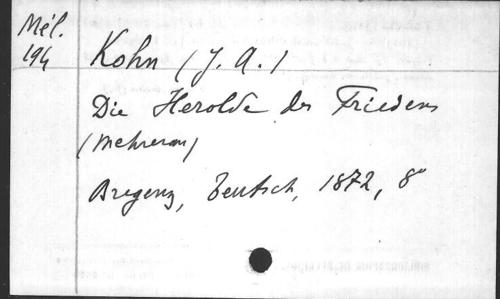 Mél.
194
Kohn (J. A.)
Die Herolde des Friedens
(Mehrerau)
Bregenz, Teutsch, 1872, 8°